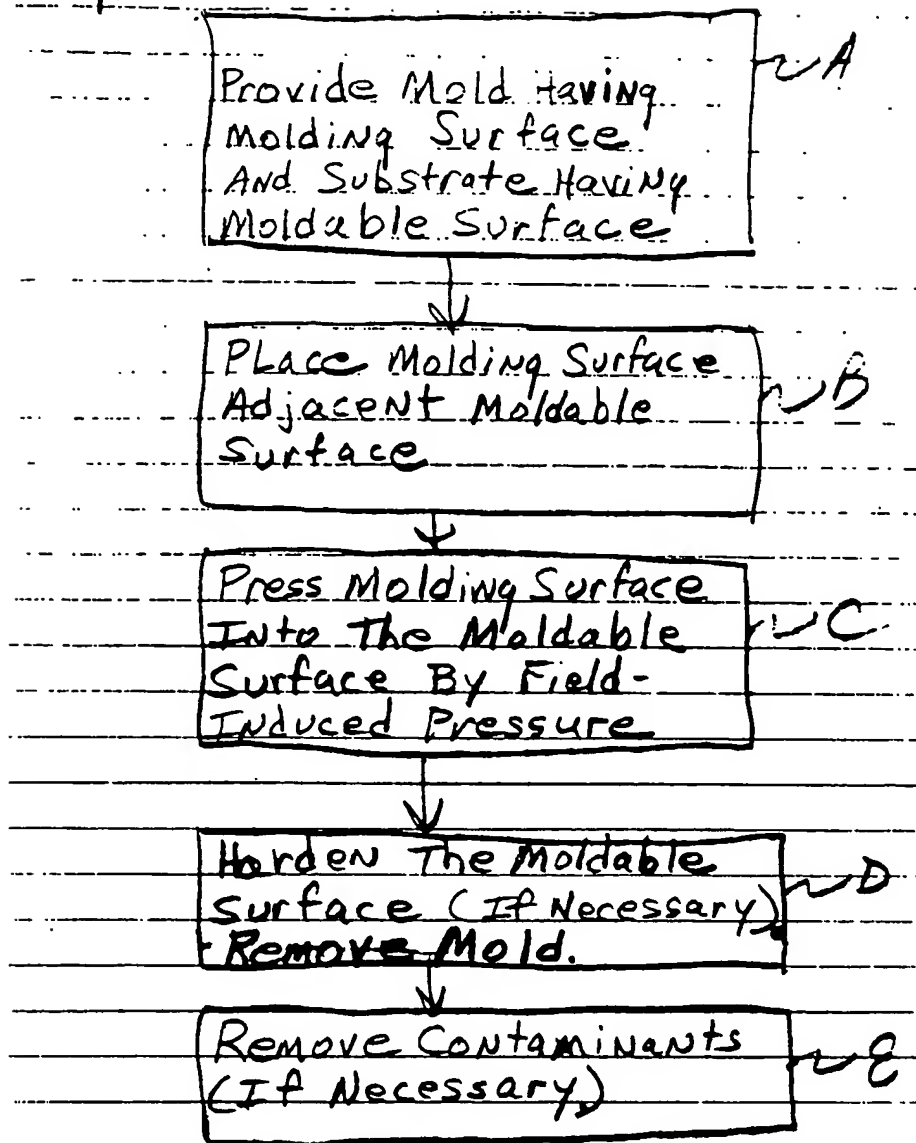 Provide Mold Having
A
Molding Surface
And Substrate Having
Moldable Surface
Place Molding Surface
B
Adjacent Moldable
Surface
Press Molding Surface
Into The Moldable
C
Surface By Field-
Induced Pressure
Harden The Moldable
D
Surface (If Necessary).
Remove Mold.
Remove Contaminants
E
(If Necessary)